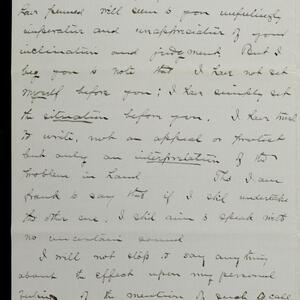 have penned will seem to you unfeelingly
imperative and unappreciative of your
inclination and judgment. But I
beg you to note that I have not set
myself before you; I have simply set
the situation before you. I have tried
to write, not an appeal or protest
but only an interpretation of the
problem in hand. Tho I am
frank to say that if I shd undertake
the other one, I shd aim to speak with
no uncertain sound
I will not stop to say anything
about the effect upon my personal
of the mention of such a call